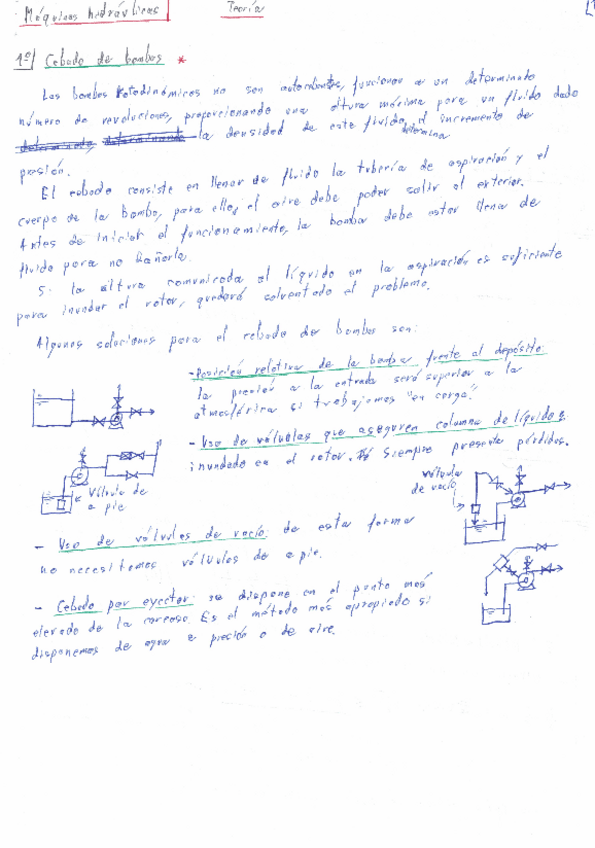 Máquinas hidráulicas Teoría
1º/ Cebado de bombas *
Las bombas rotodinámicas no son autocebantes, funcionan a un determinado
número de revoluciones, proporcionando una altura máxima para un fluido dado
la densidad de este fluido determina el incremento de
presión.
El cebado consiste en llenar de fluido la tubería de aspiración y el
cuerpo de la bomba, para ello, el aire debe poder salir al exterior.
Antes de iniciar el funcionamiento, la bomba debe estar llena de
fluido para no dañarla.
Si la altura comunicada al líquido en la aspiración es suficiente
para inundar el rotor, quedará solventado el problema.
Algunas soluciones para el cebado de bombas son:
- Posición relativa de la bomba frente al depósito:
la presión a la entrada será superior a la
atmosférica si trabajamos "en carga".
- Uso de válvulas que aseguren columna de líquido e
inundado en el rotor. Siempre presenta pérdidas.
Válvula de
a pie
válvula
de vacío
- Uso de válvulas de vacío: de esta forma
no necesitamos válvulas de a pie.
- Cebado por eyector: se dispone en el punto más
elevado de la carcasa. Es el método más apropiado si
disponemos de agua a presión o de aire.